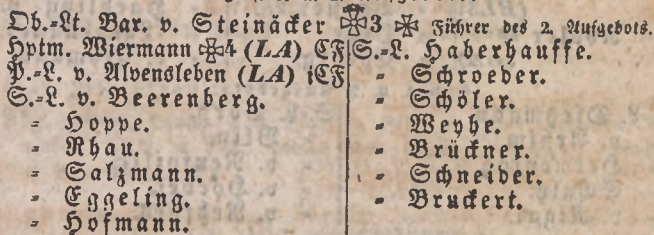 Ob.-Lt. Bar. v. Steinäcker ✠3 ✠ Führer des 2. Aufgebots.
Hptm. Wiermann ✠4 (LA) CF
P.-L. v. Alvensleben (LA) iCF
S.-L. v. Beerenberg.
= Hoppe.
= Rhau.
= Salzmann.
= Eggeling.
= Hofmann.
S.-L. Haberhauffe.
= Schroeder.
= Schöler.
= Weyhe.
= Brückner.
= Schneider.
= Bruckert.